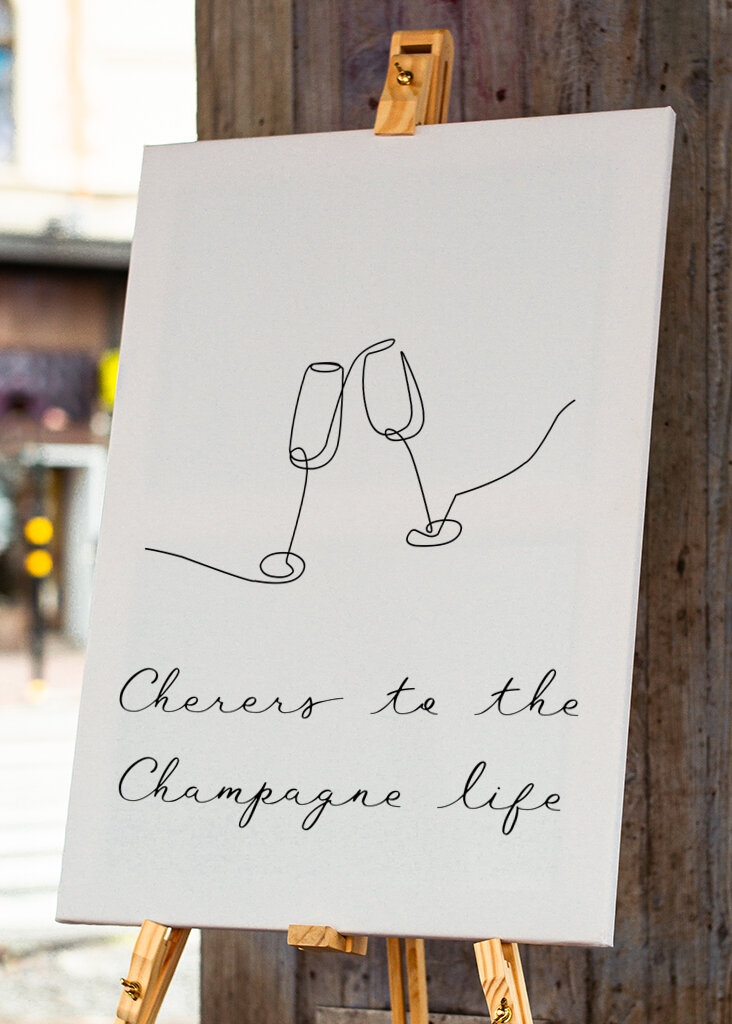 Cherers to the
Champagne life